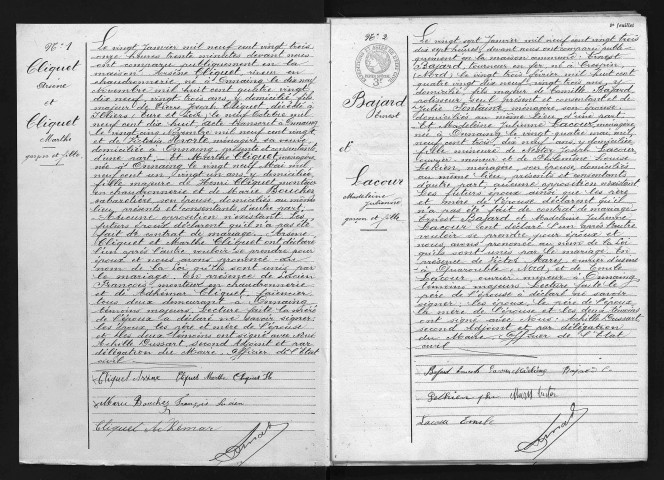 N° 1
Cliquet
Arsène
et
Cliquet
Marthe
garçon et fille
Le vingt Janvier mil neuf cent vingt trois
onze heures trente minutes devant nous
ont comparu publiquement en la
maison Arsène Cliquet riveur en
chaudronnerie, né à Onnaing le dix neuf
mil huit cent quatre vingt
dix neuf vingt trois ans y domicilié fils
majeur de Pierre Joseph Cliquet décédé à
Illiers, Eure et Loir, le neuf Octobre mil
neuf cent dix huit, acte transcrit à Onnaing
le vingt cinq Novembre mil neuf cent vingt
et de Victoria ménagère sa veuve
domiciliée à Onnaing présente et consentante,
d'une part. Et Marthe Cliquet ménagère
née à Onnaing le vingt neuf Mai mil
neuf cent un vingt un ans y domiciliée,
fille majeure de Henri Cliquet monteur
en chaudronnerie et de Marie Bouchez
cabaretière son épouse, domiciliés au même
lieu présents et consentants d'autre part.
Aucune opposition n'existant. Les
futurs époux déclarent qu'il n'a pas été
fait de contrat de mariage. Arsène
Cliquet et Marthe Cliquet ont déclaré
l'un après l'autre vouloir se prendre pour
époux et nous avons prononcé au
nom de la loi qu'ils sont unis par
le mariage. En présence de Lucien
François monteur en chaudronnerie
et de Adhémar Cliquet
tous deux demeurant à Onnaing
témoins majeurs. Lecture faite la mère
de l'époux a déclaré ne savoir signer,
les époux, les père et mère de l'épouse
et les deux témoins ont signé avec nous
Achille Dussart second Adjoint et par
délégation du Maire, Officier de l'Etat
civil
Cliquet Arsène Cliquet Marthe Cliquet H
Marie Bouchez François Lucien
Cliquet Adhémar
N° 2
Bajard
Ernest
et
Lacour
Madeleine
Julienne
garçon et fille
Le vingt sept Janvier mil neuf cent vingt trois
dix sept heures, devant nous ont comparu publi-
quement en la maison commune: Ernest
Bajard Tourneur en fer né à Crespin
(Nord) le vingt trois janvier mil huit cent
quatre vingt dix neuf vingt trois ans, y
domicilié, fils majeur de Camille Bajard
seul présent et consentant et de
Julie ménagère son épouse,
domiciliés au même lieu, d'une part.
Et Madeleine Julienne Lacour, ménagère
née à Onnaing le vingt quatre mai mil
neuf cent trois, dix neuf ans y domiciliée
fille mineure de Victor Joseph Lacour
ouvrier mineur et de Philomène Louise
ménagère, son épouse, domiciliés
au même lieu, présents et consentants
d'autre part, aucune opposition n'existant
Les futurs époux ainsi que les père
et mère de l'épouse déclarent qu'il
n'a pas été fait de contrat de mariage
Ernest Bajard et Madeleine Julienne
Lacour ont déclaré l'un après l'autre
vouloir se prendre pour époux et
nous avons prononcé au nom de la loi
qu'ils sont unis par le mariage. En
présence de Victor Marez ouvrier d'usine
à Quarouble Nord et de Emile
Lacour ouvrier mineur à Onnaing
témoins majeurs. Lecture faite le
père de l'épouse a déclaré ne savoir
signer. Les époux, le père de l'époux,
la mère de l'épouse et les deux témoins
ont signé avec Nous Achille Dussart
second Adjoint et par délégation
du Maire Officier de l'Etat
civil
Bajard Ernest Lacour Madeleine Bajard C
Marez Victor
Lacour Emile